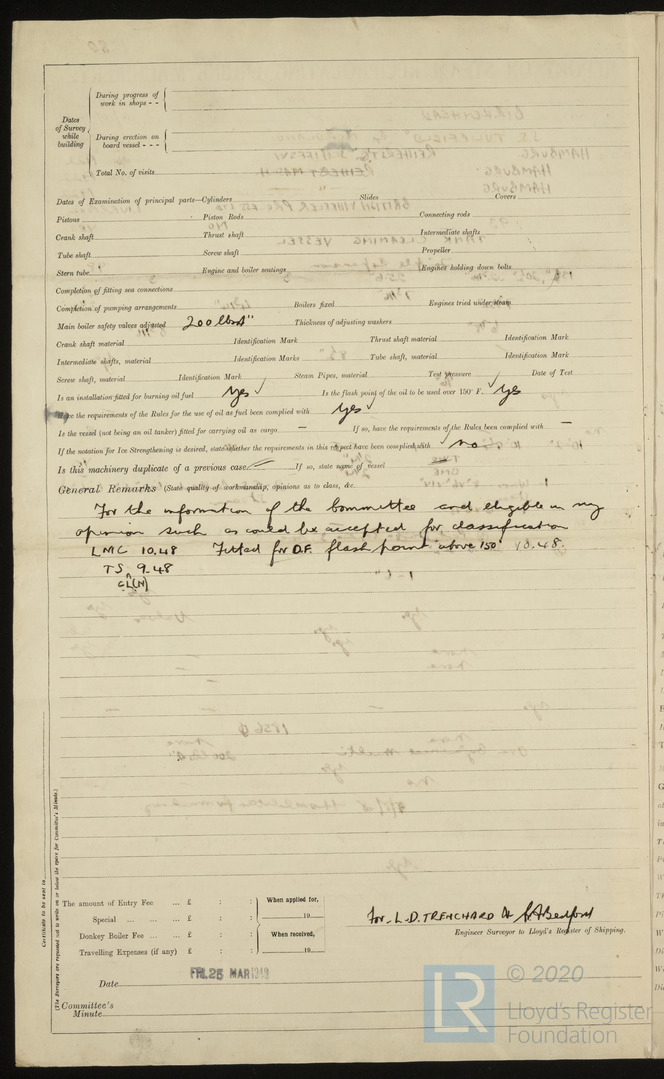 During progress of
work in shops - -
Dates
of Survey
while
building
During erection on
board vessel - - -
Total No. of visits
Dates of Examination of principal parts—Cylinders Slides Covers
Pistons Piston Rods Connecting rods
Crank shaft Thrust shaft Intermediate shafts
Tube shaft Screw shaft Propeller
Stern tube Engine and boiler seatings Engines holding down bolts
Completion of fitting sea connections
Completion of pumping arrangements Boilers fixed Engines tried under steam
Main boiler safety valves adjusted 200 lbs/□" Thickness of adjusting washers
Crank shaft material Identification Mark Thrust shaft material Identification Mark
Intermediate shafts, material Identification Marks Tube shaft, material Identification Mark
Screw shaft, material Identification Mark Steam Pipes, material Test pressure Date of Test
Is an installation fitted for burning oil fuel Yes ✓ Is the flash point of the oil to be used over 150° F. ✓ Yes
Have the requirements of the Rules for the use of oil as fuel been complied with Yes ✓
Is the vessel (not being an oil tanker) fitted for carrying oil as cargo. — If so, have the requirements of the Rules been complied with —
If the notation for Ice Strengthening is desired, state whether the requirements in this respect have been complied with ✓ no
Is this machinery duplicate of a previous case If so, state name of vessel
General Remarks (State quality of workmanship, opinions as to class, &c.
For the information of the Committee and eligible in my
opinion such as could be accepted for classification
LMC 10.48 Fitted for O.F. flash point above 150° 10.48.
TS 9.48
CL(N)
Certificate to be sent to
(The Surveyors are requested not to write on or below the space for Committee's Minute.)
The amount of Entry Fee ... £ : : When applied for,
Special ... ... ... £ : : 19
Donkey Boiler Fee ... ... £ : : When received,
Travelling Expenses (if any) £ : : 19
For L.D. TRENCHARD & Bedford
Engineer Surveyor to Lloyd's Register of Shipping.
Date FRI. 25 MAR 1949
Committee's
Minute
LR
© 2020
Lloyd's Register
Foundation